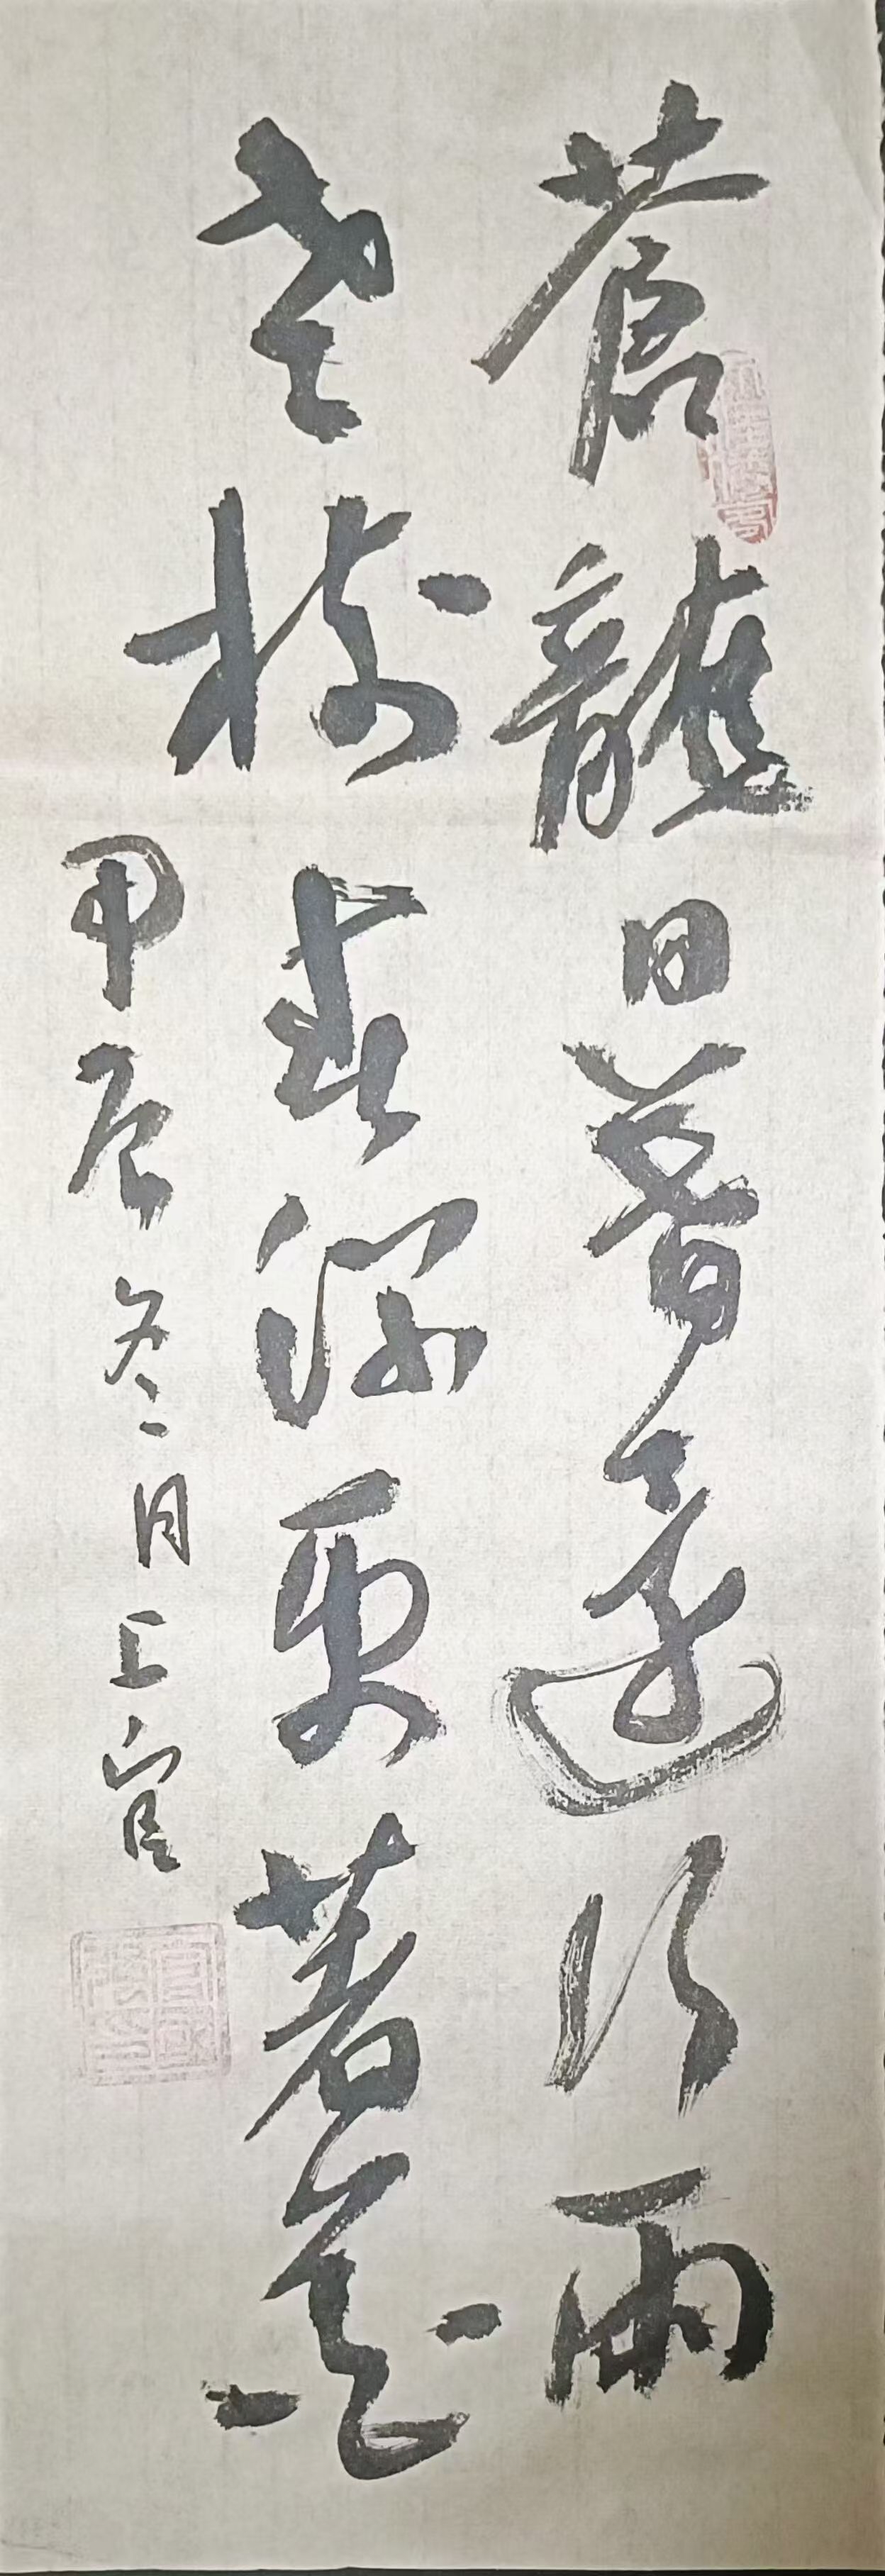 蒼龍日暮還行雨
老樹春深更著花
甲辰冬月上官